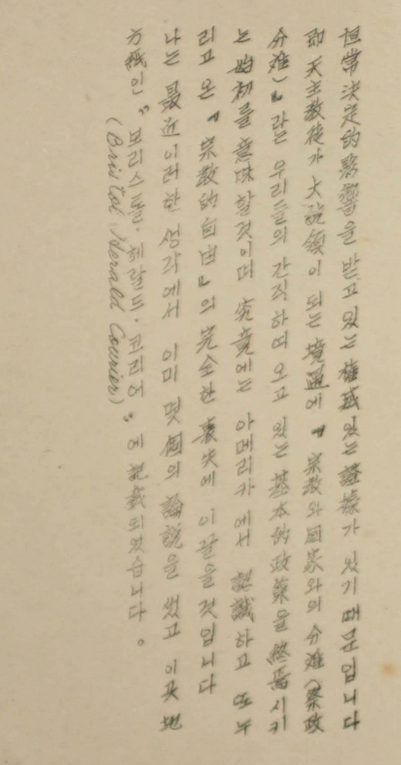 恒常決定的影響을 받고 있는 権威있는 證據가 있기 때문입니다
即 天主教徒가 大統領이 되는 境遇에 『宗教와 国家와의 分離(祭政
分離)』라는 우리들의 간직하며 오고 있는 基本的政策을 終焉시키
는 始初를 意味할것이며 究竟에는 아메리카에서 認識하고 또 누
리고 온 『宗教的自由』의 完全한 喪失에 이끌을 것입니다
나는 最近 이러한 생각에서 이미 몇個의 論説을 썼고 이곳 地
方紙인 "브리스톨·헤랄드·코리어" 에 記載되였습니다。
(Bristol Herald Courier)